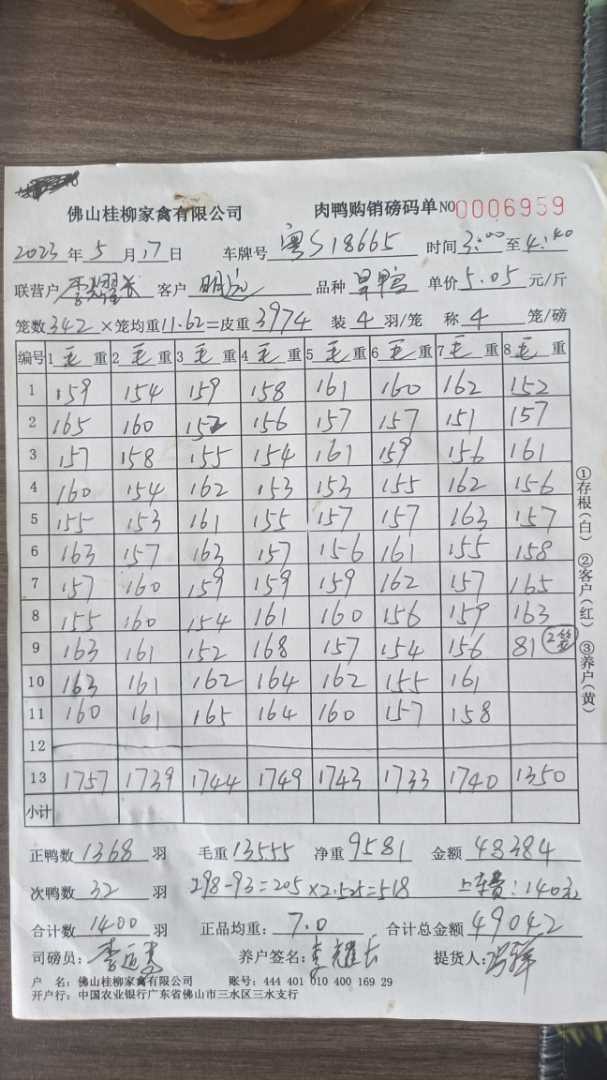 佛山桂柳家禽有限公司 肉鸭购销磅码单 NO 0006959
2023 年 5 月 17 日 车牌号 粤S18665 时间 3:00 至 4:40
联营户 李耀长 客户 明远 品种 旱鸭 单价 5.05 元/斤
笼数 342 ×笼均重 11.62 =皮重 3974 装 4 羽/笼 称 4 笼/磅
编号 1 毛 重 2 毛 重 3 毛 重 4 毛 重 5 毛 重 6 毛 重 7 毛 重 8 毛 重
1 159 154 159 158 161 160 162 152
2 165 160 152 156 157 157 151 157
3 157 158 155 154 161 159 156 161
4 160 154 162 153 153 155 162 156
5 155 153 161 155 157 157 163 157
6 163 157 163 157 156 161 155 158
7 157 160 159 159 159 162 157 165
8 155 160 154 161 160 156 159 163
9 163 161 152 168 157 154 156 81 2笼
10 163 161 162 164 162 155 161
11 160 161 165 164 160 157 158
12
13 1757 1739 1744 1749 1743 1733 1740 1350
小计
正鸭数 1368 羽 毛重 13555 净重 9581 金额 48384
次鸭数 32 羽 298-93=205×2.525=518 上车费:140元
合计数 1400 羽 正品均重: 7.0 合计总金额 49042
司磅员: 养户签名: 李耀长 提货人:
户 名: 佛山桂柳家禽有限公司 账号: 444 401 010 400 169 29
开户行: 中国农业银行广东省佛山市三水区三水支行
①存根(白) ②客户(红) ③养户(黄)